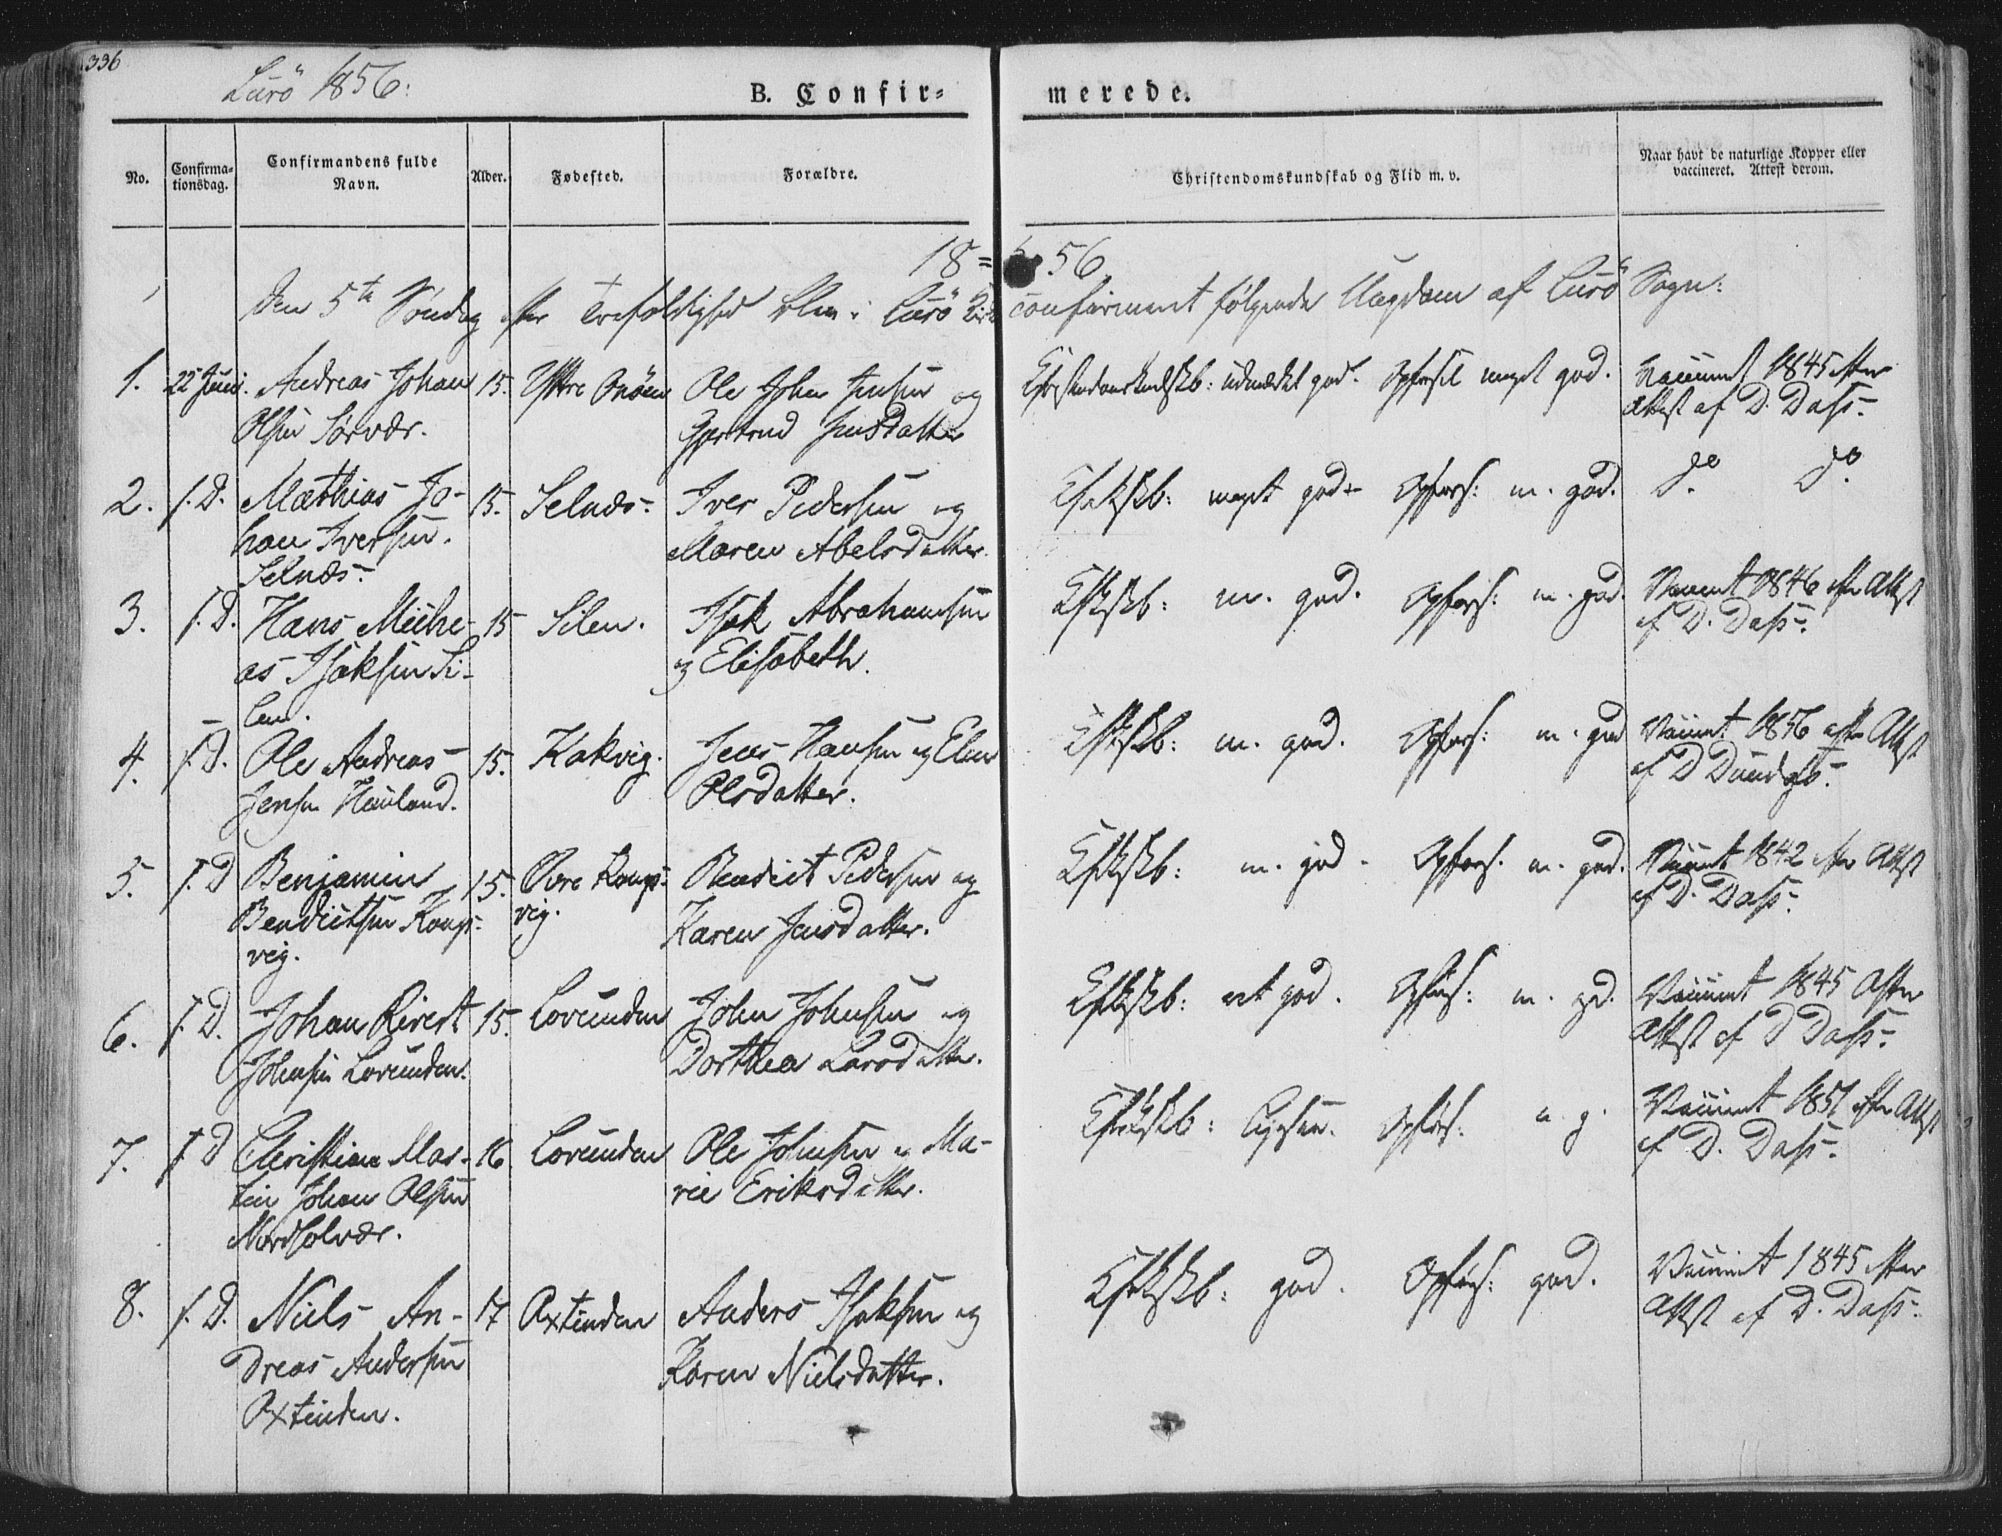 336
Lurö 1856:
B. Confir= merede.
No.
Confirma=
tionsdag.
Confirmandens fulde
Navn.
Alder.
Fødested.
Forældre.
Christendomskundskab og Flid m. v.
Naar havt de naturlige Kopper eller
vaccineret. Attest derom.
18 = 56
Den 5te Søndag efter Trefoldighed blev i Lurö confirmeret følgende Ungdom af Lurö Sogn:
1. 22 Juni. Andreas Johan 15. Yttre Ole John Jensen og Christendomskundskb: udmærket god. Opførsel meget god. Vaccineret 1845 efter
Olsen Sørvær. Gjertrud Jensdatter Attest af D. Dass.
2. f. D. Mathias Jo- 15. Selnæs Iver Pedersen og Chrkskb: meget god Opførs: m. god. do do
han Iversen. Maren Abelsdatter.
Selnæs.
3. f. D. Hans Miche- 15 Silen. Isak Abrahamsen Chrkskb: m. god. Opførs: m. god. Vaccineret 1846 efter Attest
as Isaksen Si- og Elisabeth. af D. Dass.
len.
4. f. D. Ole Andreas 15. Kakvig. Jens Hansen og Elen Chrkskb: m. god. Opførs: m. god Vaccineret 1856 efter Attest
Jensen Hauland. Olsdatter. af D
5. f. D Benjamin 15. Øvre Kongs- Bendict Pedersen og Chrkskb: m. god. Opførs. m. god. Vaccineret 1842 efter Attest
Bendictsen Kongs- vig. Karen Jensdatter. af D. Dass.
vig.
6. f. D. Johan Rivert 15. Lovunden John Johnsen og Chrkskb: ret god. Opførs: m. god. Vaccineret 1845 efter
Johnsen Lovunden. Dorthea Larsdatter. Attest af D Dass.
7. f. D Christian Mar- 16 Lovunden Ole Johnsen og Ma- Chrkskb: Opførs: m. g. Vaccineret 1851 efter Attest
tin Johan Olsen rie Eriksdatter. af D. Dass.
Nordsolvær.
8. f. D. Niels An- 17 Oxtinden Anders Isaksen og Chrkskb: god. Opførs: god. Vaccineret 1845 efter
dreas Andersen Karen Nielsdatter. Attest af D. Dass.
Oxtinden.